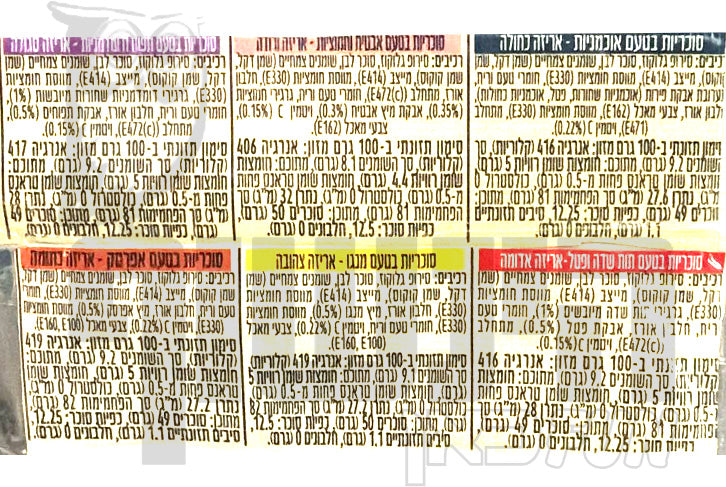 סוכריות בטעם אוכמניות - אריזה כחולה
רכיבים: סירופ גלוקוז, סוכר לבן, שומנים צמחיים (שמן דקל,
שמן קוקוס), מייצב (E414), מווסת חומציות (E330), חומרי טעם וריח,
חלבון אורז, צבעי מאכל (E162), מווסת חומציות (E330), מתחלב
(E471) ,ויטמין C (0.22%)
סימון תזונתי ב-100 גרם מזון: אנרגיה 416 (קלוריות), סך
השומנים 9.2 (גרם), מתוכם: חומצות שומן רוויות 5 (גרם),
חומצות שומן טראנס פחות מ-0.5 (גרם), כולסטרול 0 (מ"ג)
נתרן 27.6 (מ"ג) סך הפחמימות 81 (גרם), מתוכן:
סוכרים 49 (גרם), כפיות סוכר: 12.25, סיבים תזונתיים
1.1 (גרם), חלבונים 0 (גרם)
סוכריות בטעם אבטיח וחמוציות - אריזה ורודה
רכיבים: סירופ גלוקוז, סוכר לבן, שומנים צמחיים (שמן דקל,
שמן קוקוס), מייצב (E414), מווסת חומציות (E330), חלבון
אורז, מתחלב (E472(c)), חומרי טעם וריח, גרגירי חמוציות
(0.35%), אבקת מיץ אבטיח (0.3%), ויטמין C (0.15%)
צבעי מאכל (E162)
סימון תזונתי ב-100 גרם מזון: אנרגיה 406
(קלוריות), סך השומנים 8.1 (גרם), מתוכם: חומצות
שומן רוויות 4.4 (גרם), חומצות שומן טראנס פחות
מ-0.5 (גרם), כולסטרול 0 (מ"ג), נתרן 32 (מ"ג) סך
הפחמימות 81 (גרם), מתוכן: סוכרים 50 (גרם),
כפיות סוכר: 12.5, חלבונים 0 (גרם)
אריזה סגולה
רכיבים: סירופ גלוקוז, סוכר לבן, שומנים צמחיים (שמן
דקל, שמן קוקוס), מייצב (E414), מווסת חומציות
(E330), גרגירי דומדמניות שחורות מיובשות (1%),
חומרי טעם וריח, חלבון אורז, אבקת תפוחים (0.5%),
מתחלב (E472(c)), ויטמין C (0.15%)
סימון תזונתי ב-100 גרם מזון: אנרגיה 417
(קלוריות), סך השומנים 9.2 (גרם), מתוכם:
חומצות שומן רוויות 5 (גרם), חומצות שומן טראנס
פחות מ-0.5 (גרם), כולסטרול 0 (מ"ג), נתרן 28
(מ"ג) סך הפחמימות 81 (גרם), מתוכן: סוכרים 49
(גרם), כפיות סוכר: 12.25, חלבונים 0 (גרם)
סוכריות בטעם תות שדה ופטל-אריזה אדומה
רכיבים: סירופ גלוקוז, סוכר לבן, שומנים צמחיים (שמן
דקל, שמן קוקוס), מייצב (E414), מווסת חומציות
(E330), תות שדה מיובשים (1%), חומרי טעם
וריח, חלבון אורז, אבקת פטל (0.5%), מתחלב
(E472(c)), ויטמין C (0.15%)
סימון תזונתי ב-100 גרם מזון: אנרגיה 416
(קלוריות), סך השומנים 9.2 (גרם), מתוכם: חומצות
שומן רוויות 5 (גרם), חומצות שומן טראנס פחות מ-
0.5 (גרם), כולסטרול 0 (מ"ג), נתרן 28 (מ"ג) סך
הפחמימות 81 (גרם), מתוכן: סוכרים 49 (גרם),
כפיות סוכר: 12.25, חלבונים 0 (גרם).
סוכריות בטעם מנגו - אריזה צהובה
רכיבים: סירופ גלוקוז, סוכר לבן, שומנים צמחיים (שמן
דקל, שמן קוקוס), מייצב (E414), מווסת חומציות
(E330), חלבון אורז, מיץ מנגו (0.5%), מווסת חומציות
(E330), חומרי טעם וריח, ויטמין C (0.22%), צבעי מאכל
(E160, E100)
סימון תזונתי ב-100 גרם מזון: אנרגיה 419 (קלוריות)
סך השומנים 9.1 (גרם), מתוכם: חומצות שומן רוויות 5
(גרם), חומצות שומן טראנס פחות מ-0.5 (גרם),
כולסטרול 0 (מ"ג), נתרן 27.2 (מ"ג) סך הפחמימות 82
(גרם), מתוכן: סוכרים 50 (גרם), כפיות סוכר: 12.5,
סיבים תזונתיים 1.1 (גרם), חלבונים 0 (גרם)
סוכריות בטעם אפרסק - אריזה כתומה
רכיבים: סירופ גלוקוז, סוכר לבן, שומנים צמחיים (שמן דקל,
שמן קוקוס), מייצב (E414), מווסת חומציות (E330), חומרי
טעם וריח, חלבון אורז, מיץ אפרסק (0.5%), מווסת חומציות
(E330), ויטמין C (0.22%), צבעי מאכל (E160, E100)
סימון תזונתי ב-100 גרם מזון: אנרגיה 419
(קלוריות), סך השומנים 9.2 (גרם), מתוכם:
חומצות שומן רוויות 5 (גרם), חומצות שומן
טראנס פחות מ-0.5 (גרם), כולסטרול 0 (מ"ג),
נתרן 27.2 (מ"ג) סך הפחמימות 82 (גרם),
מתוכן: סוכרים 49 (גרם), כפיות סוכר: 12.25,
סיבים תזונתיים 1.1 (גרם), חלבונים 0 (גרם).